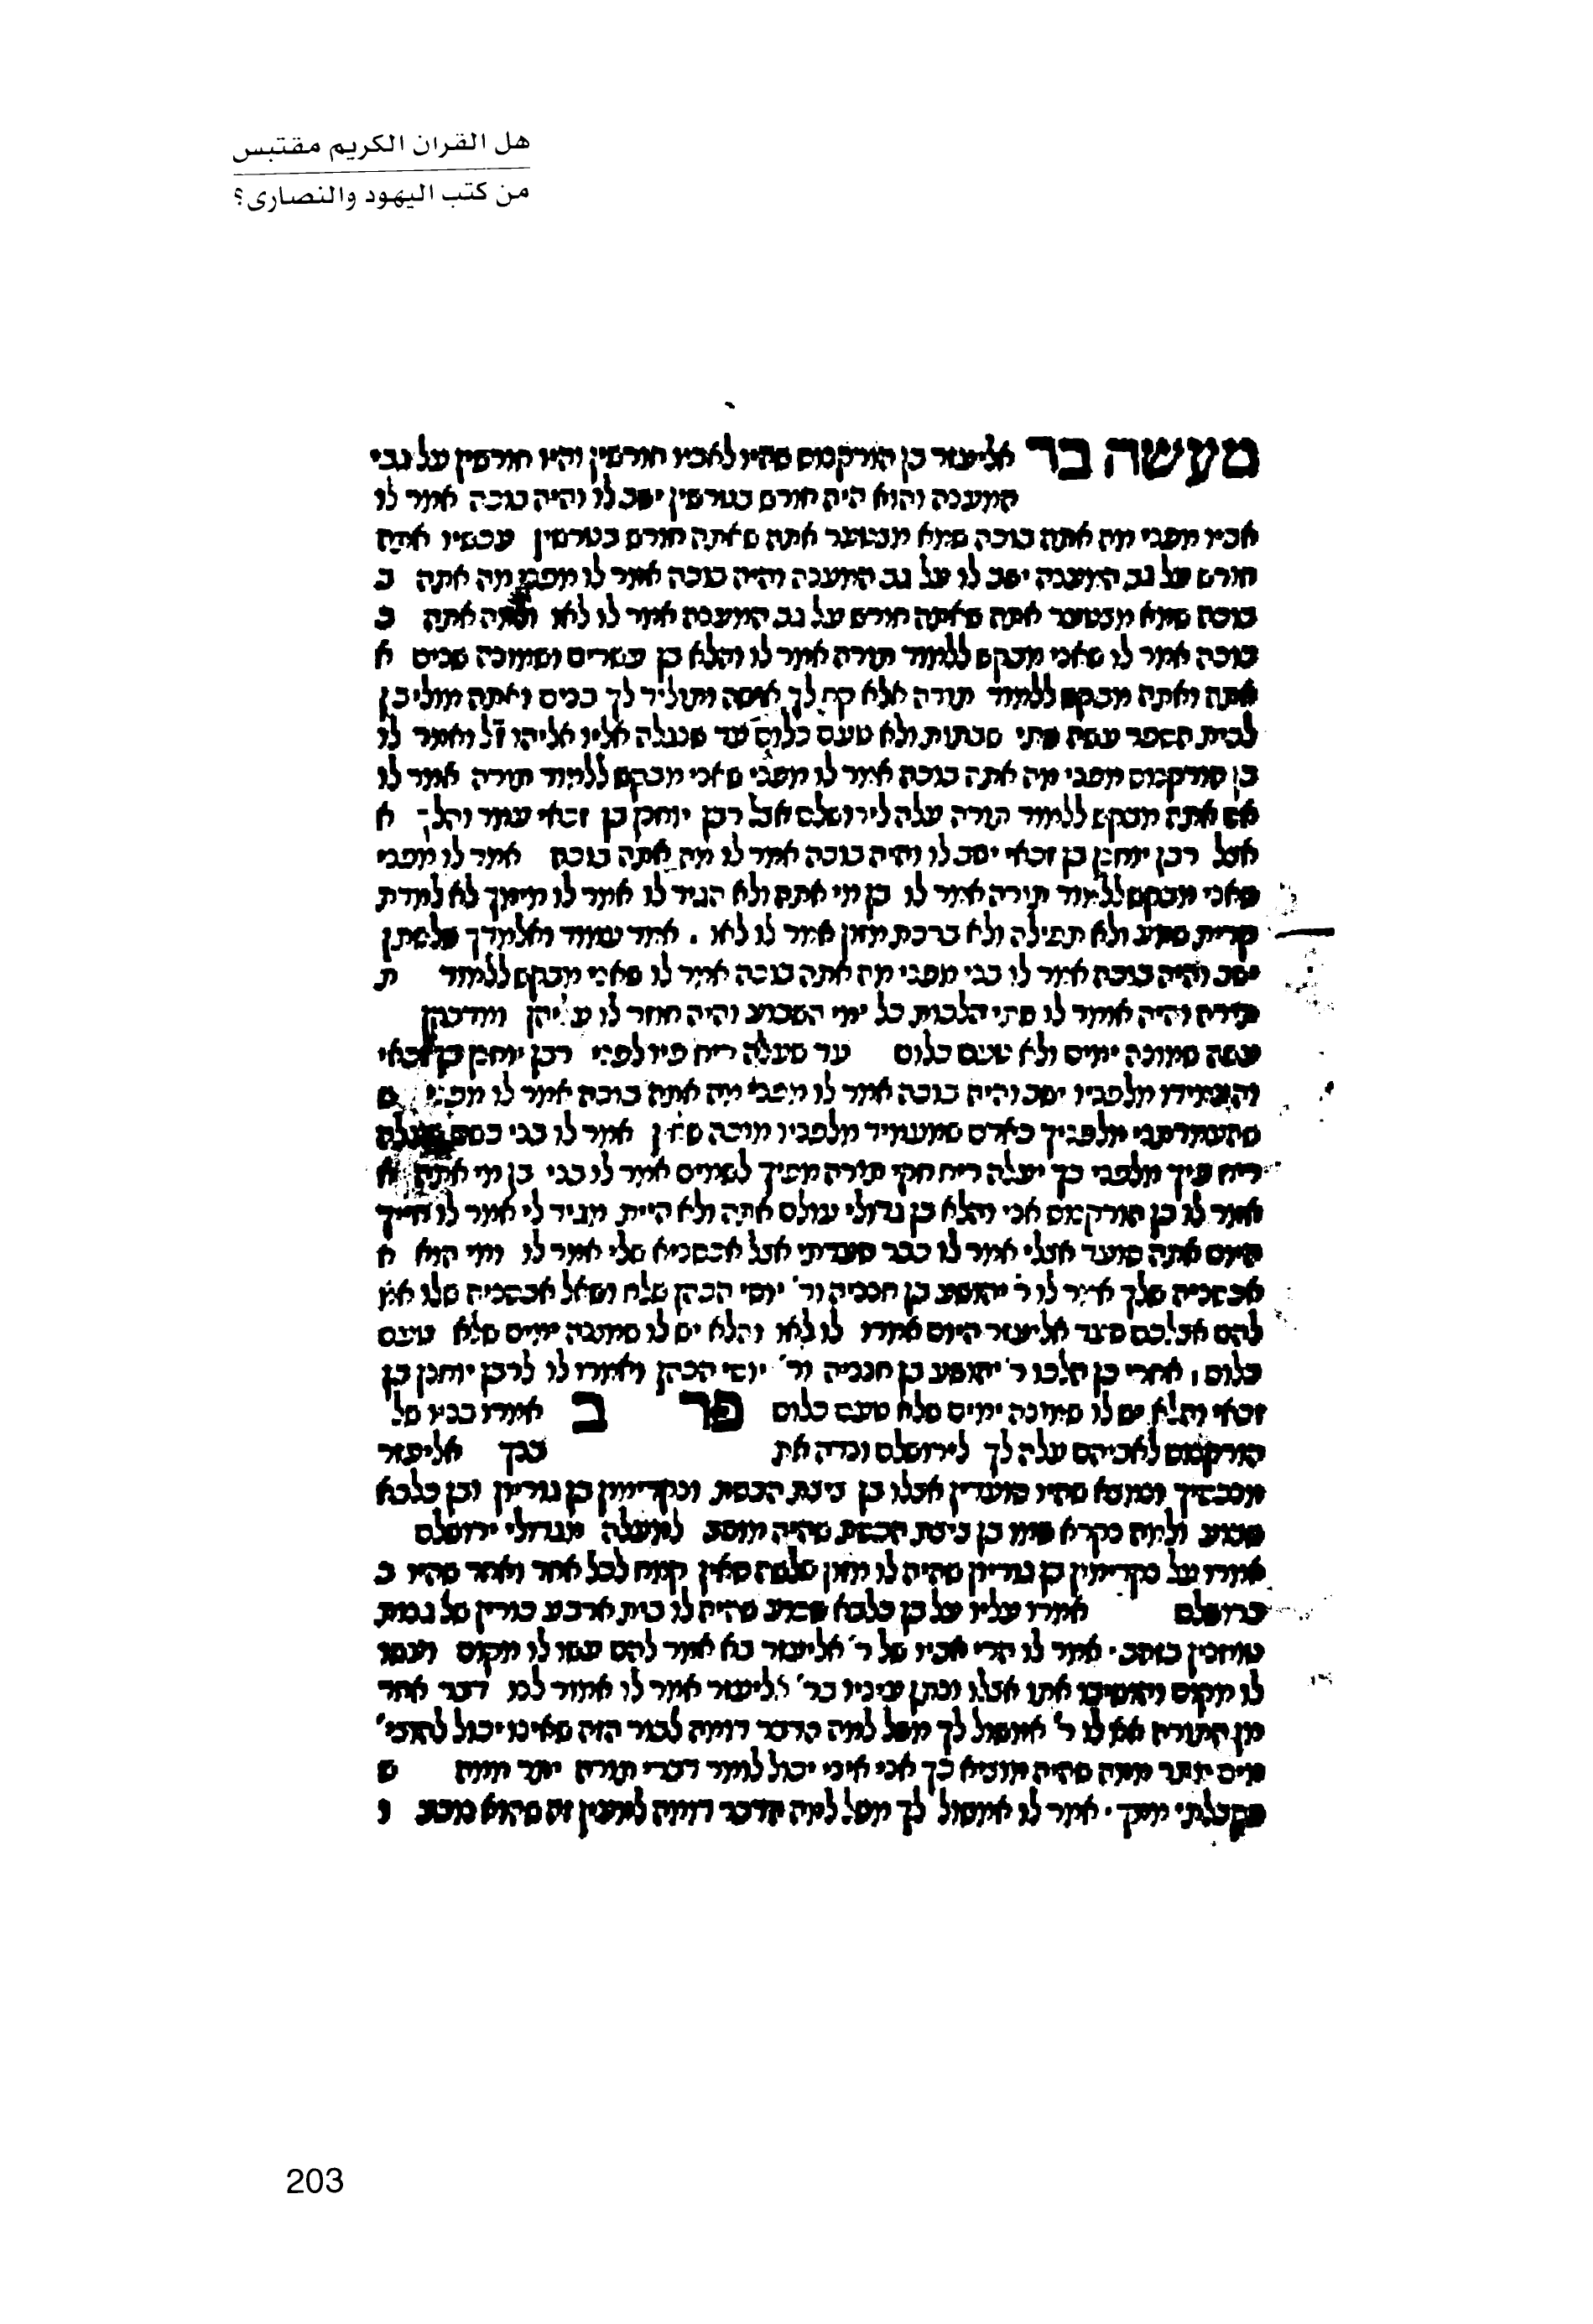 هل القرآن الكريم مقتبس
من كتب اليهود والنصارى؟
מעשה בר אליעזר בן הורקנוס שהיו לאביו חורשין והיו חורשין על גבי
המענה והוא היה חורש בטרשין ישב לו והיה בוכה אמר לו
אביו מפני מה אתה בוכה שמא מצטער אתה שאתה חורש בטרשין עכשיו אתה
חורש על גב המענה ישב לו על גב המענה והיה בוכה אמר לו מפני מה אתה ב
בוכה שמא מצטער אתה שאתה חורש על גב המענה אמר לו לאו ולמה אתה ב
בוכה אמר לו שאני מבקש ללמוד תורה אמר לו והלא בן עשרים ושמונה שנים א
אתה ואתה מבקש ללמוד תורה אלא קח לך אשה ותוליד לך בנים ואתה מוליכן
לבית הספר עשה שתי שבתות ולא טעם כלום עד שנגלה אליו אליהו ז״ל ואמר לו
בן הורקנוס מפני מה אתה בוכה אמר לו מפני שאני מבקש ללמוד תורה אמר לו
אם אתה מבקש ללמוד תורה עלה לירושלם אצל רבן יוחנן בן זכאי עמד והלך א
אצל רבן יוחנן בן זכאי ישב לו והיה בוכה אמר לו מה אתה בוכה אמר לו מפני
שאני מבקש ללמוד תורה אמר לו בן מי אתה ולא הגיד לו אמר לו מימך לא למדת
קרית שמע ולא תפילה ולא ברכת מזון אמר לו לאו . אמר עמוד ואלמדך שלשתן
ישב והיה בוכה אמר לו בני מפני מה אתה בוכה אמר לו שאני מבקש ללמוד ת
תורה והיה אומר לו שתי הלכות כל ימי השבוע והיה חוזר לו עליהן ומדבקן
עשה שמונה ימים ולא טעם כלום עד שעלה ריח פיו לפני רבן יוחנן בן זכאי
והעמידו מלפניו ישב והיה בוכה אמר לו מפני מה אתה בוכה אמר לו מפני ש
שהעמדתני מלפניך כאדם שמעמיד מלפניו מוכה שחין אמר לו בני כשם שעלה
ריח פיך מלפני כך יעלה ריח חקי תורה מפיך לשמים אמר לו בני בן מי אתה א
אמר לו בן הורקנוס אני והלא בן גדולי עולם אתה ולא היית מגיד לי אמר לו חייך
היום אתה סועד אצלי אמר לו כבר סעדתי אצל אכסניא שלי אמר לו ומי הוא א
אכסניה שלך אמר לו ר׳ יהושע בן חנניה ור׳ יוסי הכהן שלח ושאל אכסניה שלו אמ
להם אצלכם סעד אליעזר היום אמרו לו לאו והלא יש לו שמונה ימים שלא טעם
כלום . אחרי כן הלכו ר׳ יהושע בן חנניה ור׳ יוסי הכהן ואמרו לו לרבן יוחנן בן
זכאי והלא יש לו שמונה ימים שלא טעם כלום פר ב אמרו בניו של
הורקנוס לאביהם עלה לך לירושלם ונדה את בנך אליעזר
מנכסיך ונמצא שהיו סועדין אצלו בן ציצת הכסת ונקדימון בן גוריון ובן כלבא
שבוע ולמה נקרא שמו בן ציצת הכסת שהיה מוסב למעלה מגדולי ירושלם
אמרו על נקדימון בן גוריון שהיה לו מזון שלשה סאין קמח לכל אחד ואחד שהיו ב
בירושלם אמרו עליו על בן כלבא שבוע שהיה לו בית ארבע כורין של גגות
טוחטין בזהב . אמר לו הרי אביו של ר׳ אליעזר בא אמר להם עשו לו מקום ועשו
לו מקום והושיבו אתו אצלו ונתן עיניו בר׳ אליעזר אמר לו אמור לנו דבר אחד
מן התורה אמ׳ לו ר׳ אמשול לך משל למה הדבר דומה לבור הזה שאינו יכול להוצי׳
מים יותר ממה שהיה מוציא כך אני איני יכול לומר דברי תורה יותר ממה ש
שקבלתי ממך . אמר לו אמשול לך משל למה הדבר דומה למעין זה שהוא נובע ו
203